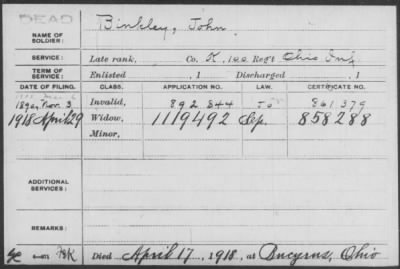 DEAD
NAME OF SOLDIER: Binkley, John.
SERVICE: Late rank, Co. K, 100 Reg't Ohio Inf.
TERM OF SERVICE: Enlisted , 1 Discharged , 1
DATE OF FILING. CLASS. APPLICATION NO. LAW. CERTIFICATE NO.
1890, Nov. 3 Invalid, 892 844 861 379
1918 April 29 Widow, 1119492 Sep. 858288
Minor,
ADDITIONAL SERVICES:
REMARKS:
Died April 17, 1918, at Bucyrus, Ohio